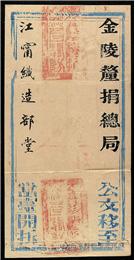 金陵釐捐總局
公文移至
江甯織造部堂
當堂開拆